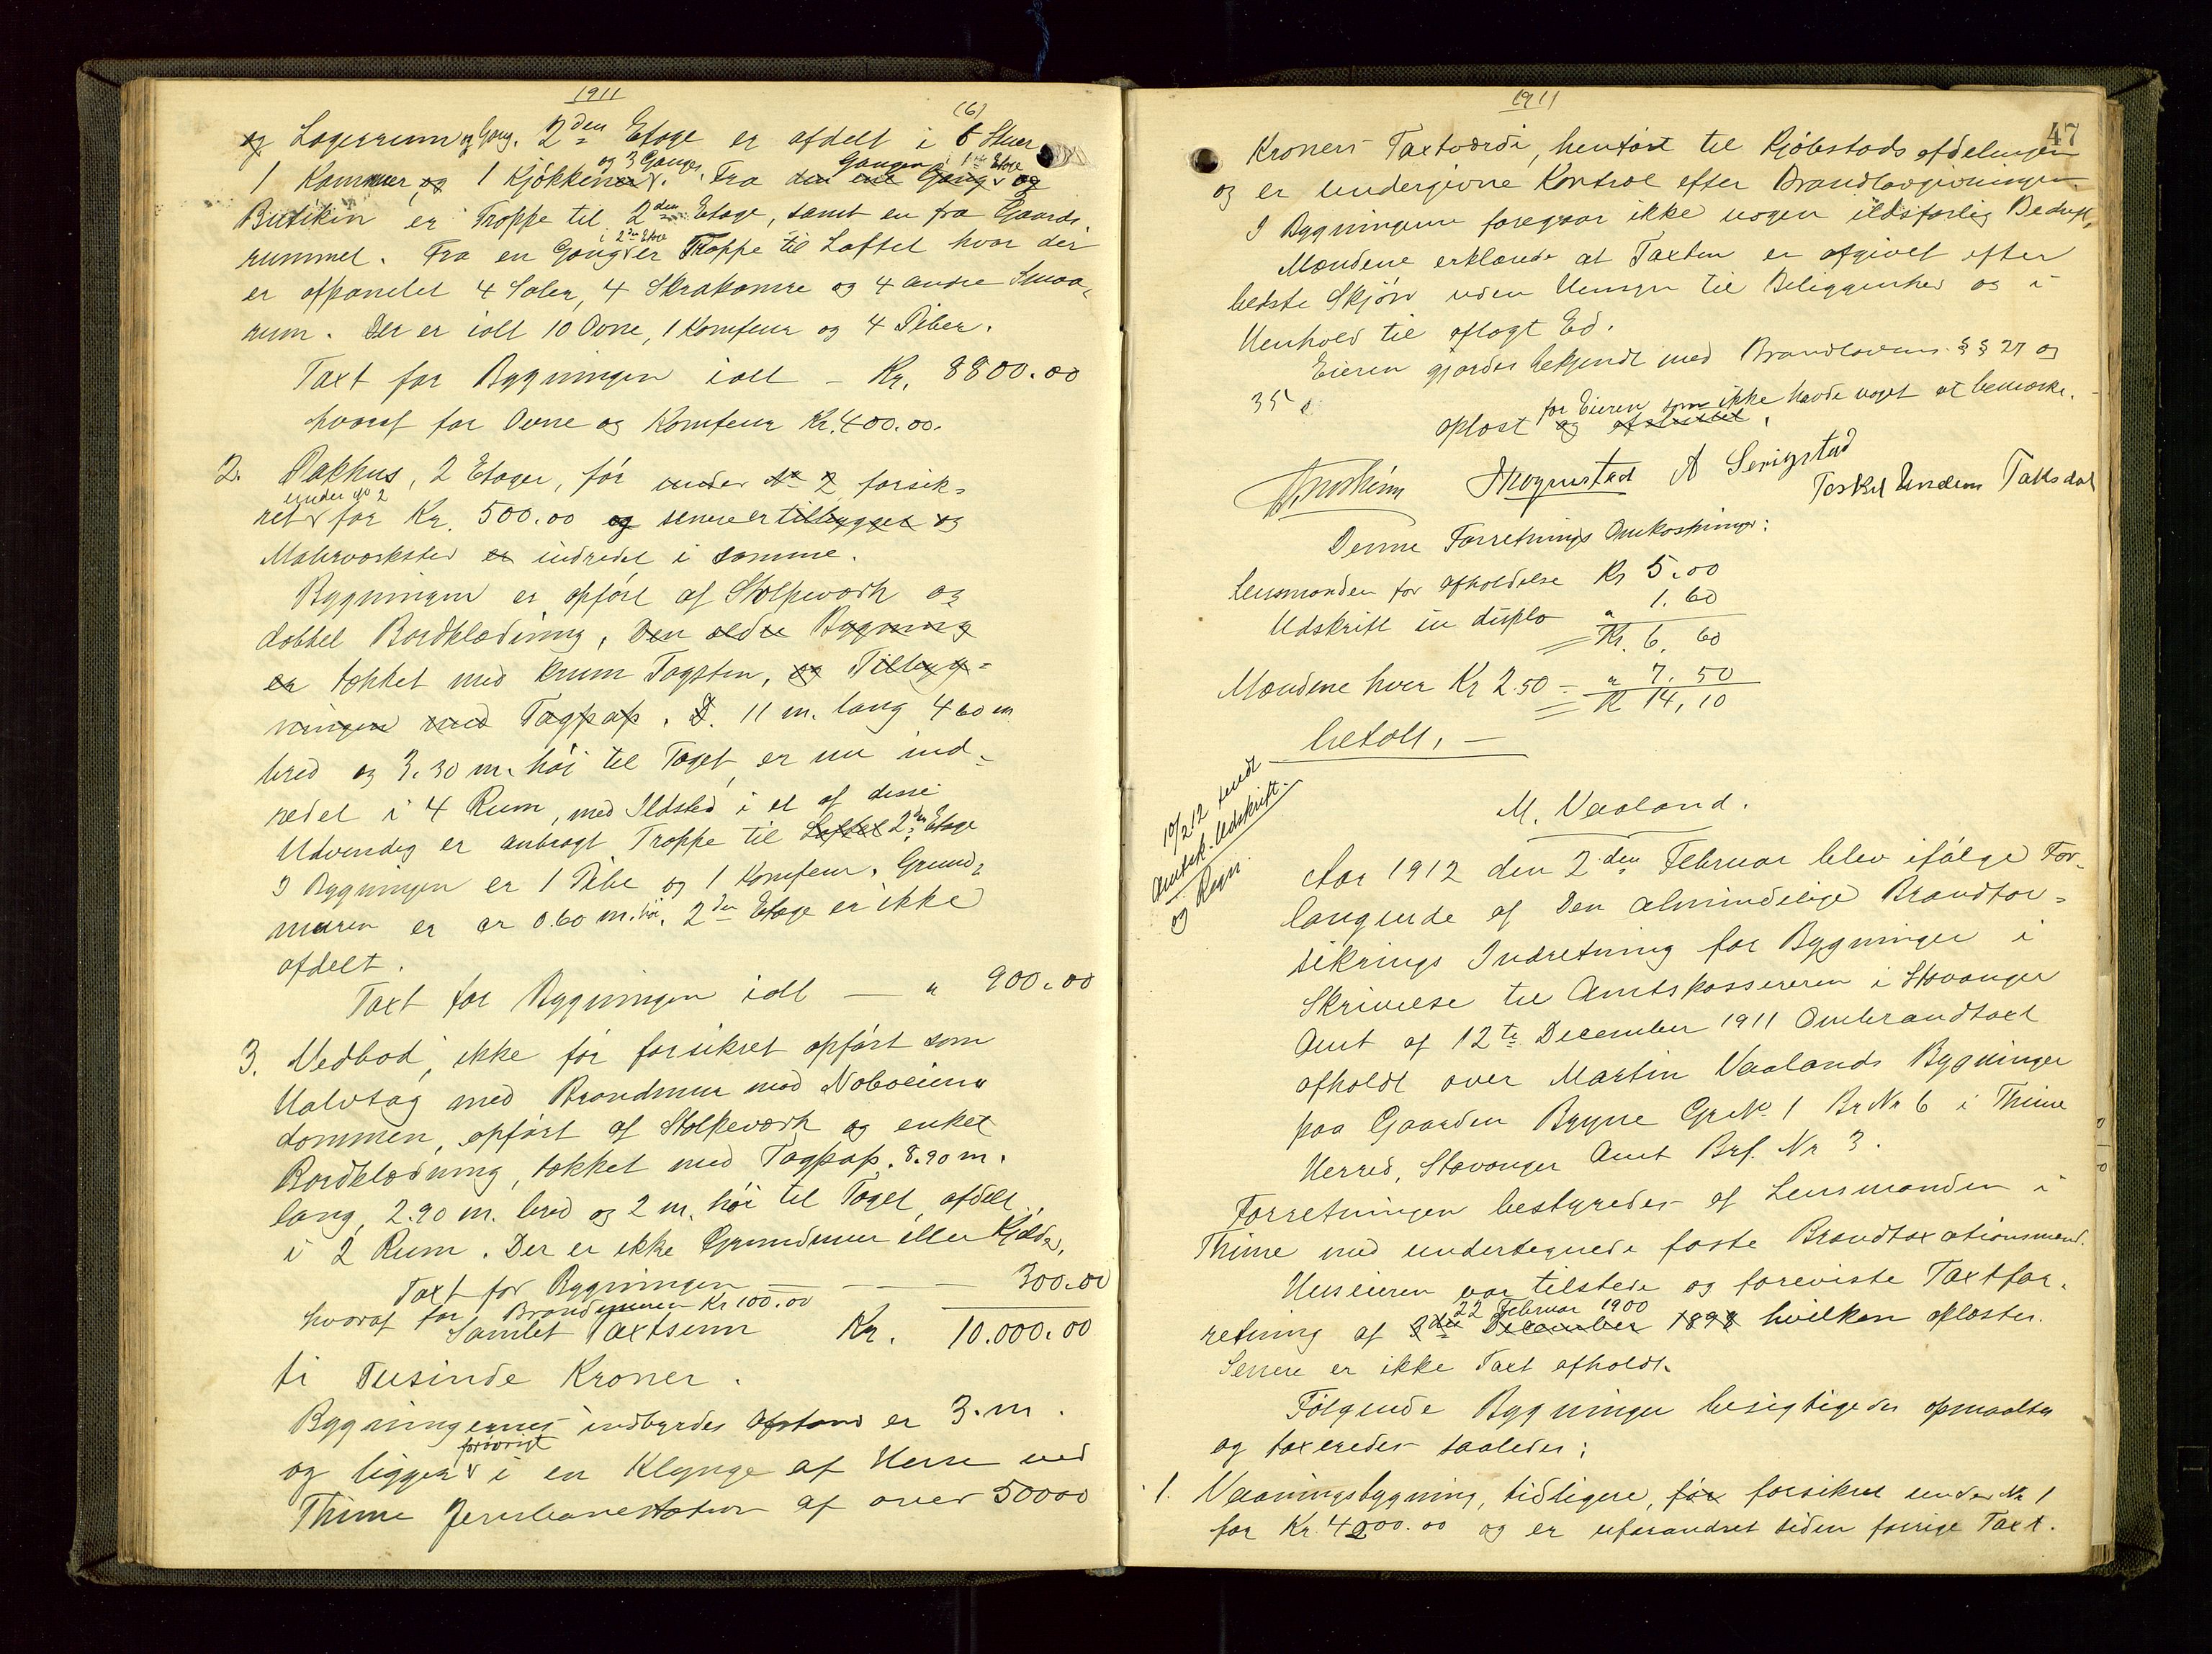 1911
og Lagerrum og Gang. 2den Etage er afdelt i 6 (6) Stuer
1 Kammer og 1 Kjøkkener og 3 Ganger. Fra den ene Gang Gangen i 1ste Etage og
Butiken er Trappe til 2den Etage, samt en fra Gaards
rummet. Fra en Gang i 2den Etage er Trappe til Loftet hvor der
er afpanelet 4 Saler, 4 Skrakamre og 4 andre Smaa-
rum. Der er ialt 10 Ovne, 1 Komfeur og 4 Piber.
Taxt for Bygningen ialt - Kr. 8800.00
hvoraf for Ovne og Komfeur Kr. 400.00.
2. Pakhus, 2 Etager, før under No 2 forsik-
ret under No 2 for Kr. 500.00 og senere er tilbygget og
Malerværksted er indredet i samme.
Bygningen er opført af Stolpeværk og
dobbel Bordklædning, Den ældre Bygning
er tækket med krum Tagsten, og Tilbyg-
ningen med Tagpap. D. 11 m. lang 4 60 m
bred og 3.30 m. høi til Taget, er nu ind-
redet i 4 Rum, med Ildsted i et af disse
Udvendig er anbragt Trappe til Loftet 2den Etage
I Bygningen er 1 Pibe og 1 Komfeur. Grund-
muren er ca 0.60 m. høi. 2den Etage er ikke
afdelt.
Taxt for Bygningen ialt — " 900.00
3. Vedbod, ikke før forsikret opført som
Halvtag med Brandmur mod Naboeien-
dommen, opført af Stolpeværk og enkel
Bordklædning, tækket med Tagpap. 8.90 m.
lang, 2.90 m. bred og 2 m. høi til Taget, afdelt
i 2 Rum. Der er ikke Grundmur eller Kjælder.
Taxt for Bygningen — — — 300.00
hvoraf for Brandmuren Kr 100.00
Samlet Taxtsum Kr. 10.000.00
ti Tusinde Kroner.
Bygningernes indbyrdes Afstand er 3. m.
og ligger forøvrigt i en Klynge af Huse ved
Thime Jernbanestation af over 50000
1911
47
Kroners Taxtværdi, henført til Kjøbstads afdelingen
og er undergivne Kontrol efter Brandlovgivningen.
I Bygningerne foregaar ikke nogen ildsfarlig Bedrift,
Mændene erklærede at Taxten er afgivet efter
bedste Skjøn uden Hensyn til Beliggenhed og i
Henhold til aflagt Ed.
Eieren gjordes bekjendt med Brandlovens §§ 27 og
35.
Oplæst for Eieren som ikke havde noget at bemærke.
og afsluttet.
A Serigstad
Taksdal
Denne Forretnings Omkostninger:
Lensmanden for afholdelse Kr 5.00
Udskrift in duplo " 1.60
Kr. 6. 60
Mændene hver Kr 2.50 = " 7. 50
K 14,10
betalt. —
10/2 12 sendt
Amtsk. Udskrift.
og Regn.
M. Vaaland.
Aar 1912 den 2den Februar blev ifølge For-
langende af Den almindelige Brandfor-
sikrings Indretning for Bygninger i
Skrivelse til Amtskassereren i Stavanger
Amt af 12te December 1911 Ombrandtaxt
afholdt over Martin Vaalands Bygninger
paa Gaarden Bryne GrNo 1 BrNr 6 i Thime
Herred, Stavanger Amt Brf. Nr 3.
Forretningen bestyredes af Lensmanden i
Thime med undertegnede faste Brandtaxationsmænd.
Huseieren var tilstede og foreviste Taxtfor-
retning af 3die December 1898 22 Februar 1900 hvilken oplæstes.
Senere er ikke Taxt afholdt.
Følgende Bygninger besigtigedes opmaaltes
og taxeredes saaledes:
1. Vaaningsbygning, tidligere, før forsikret under No 1
for Kr. 4000.00 og er uforandret siden forrige Taxt.